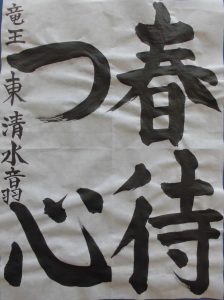 春待
つ心
竜王東 清水音羽